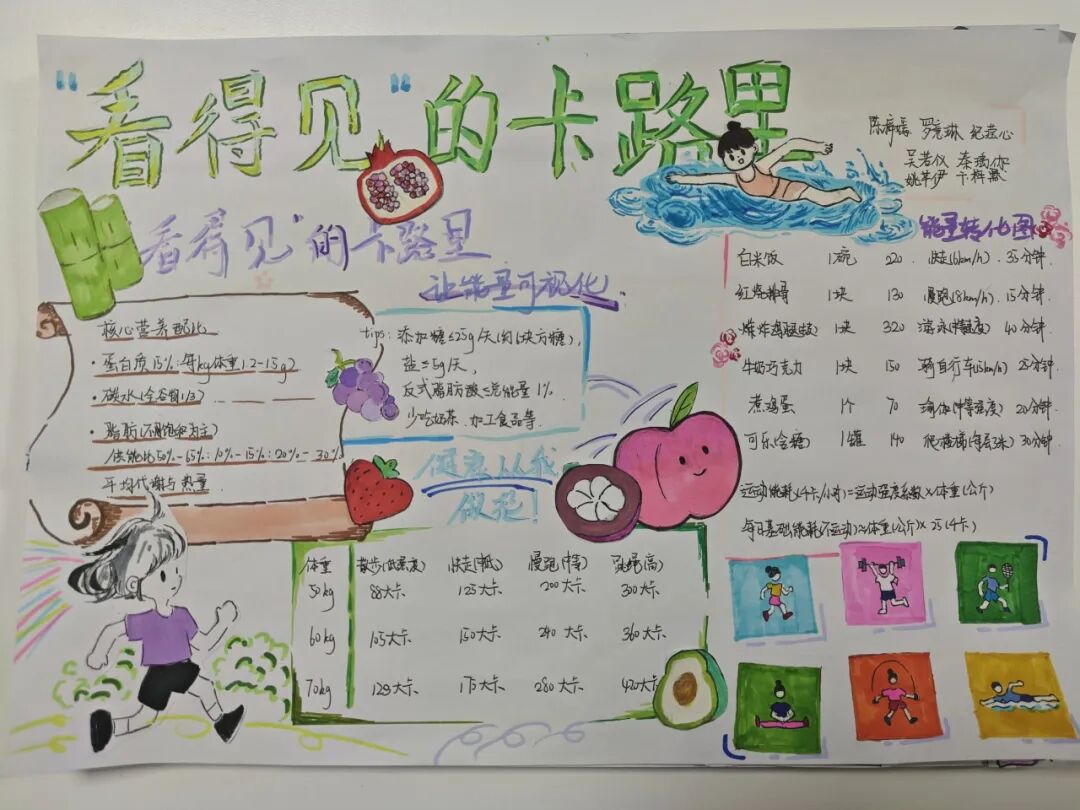 “看得见”的卡路里
陈 罗 琳 纪 心
吴若仪 秦瑀
姚芊伊 卞梓
“看得见”的卡路里
让能量可视化
核心营养配比
·蛋白质15%:每kg体重1.2-1.5g
·碳水(全谷物1/3)
·脂肪(不饱和为主)
供能比50%-65%:10%-15%:20%-30%
平均代谢与热量
tips:添加糖≤25g/天(约6块方糖),
盐≤5g/天,
反式脂肪酸≤总能量1%.
少吃奶茶、加工食品等.
健康从我
做起!
能量转化图
白米饭 1碗 220 快走(6km/h) 35分钟
红烧排骨 1块 130 慢跑(8km/h) 15分钟
炸鸡 1块 320 游泳(中等强度) 40分钟
牛奶巧克力 1块 150 骑自行车(15km/h) 25分钟
煮鸡蛋 1个 70 瑜伽(中等强度) 20分钟
可乐(含糖) 1罐 140 爬楼梯 30分钟
运动能耗(千卡/小时)=运动强度系数×体重(公斤)
每日基础能耗(不运动)≈体重(公斤)×25(千卡)
体重 散步(低强度) 快走(中低) 慢跑(中等) 跳绳(高)
50kg 88大卡 125大卡 200大卡 300大卡
60kg 105大卡 150大卡 240大卡 360大卡
70kg 123大卡 175大卡 280大卡 420大卡